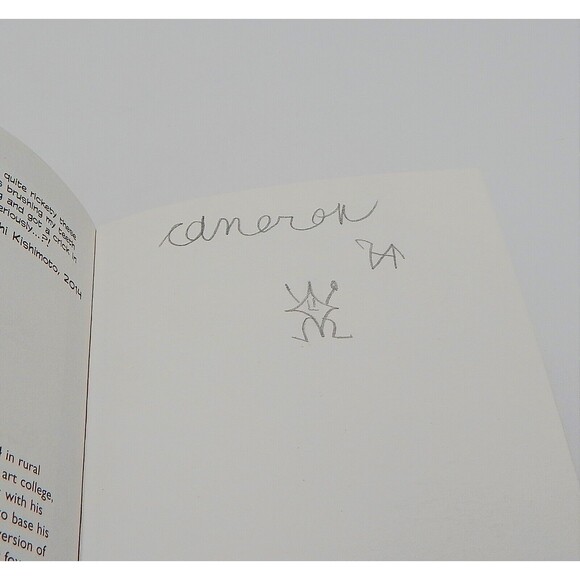 quite rickety these
brushing my teeth
and got a crick in
eriously...?!
hi Kishimoto, 2014
in rural
art college,
with his
to base his
version of
cameron